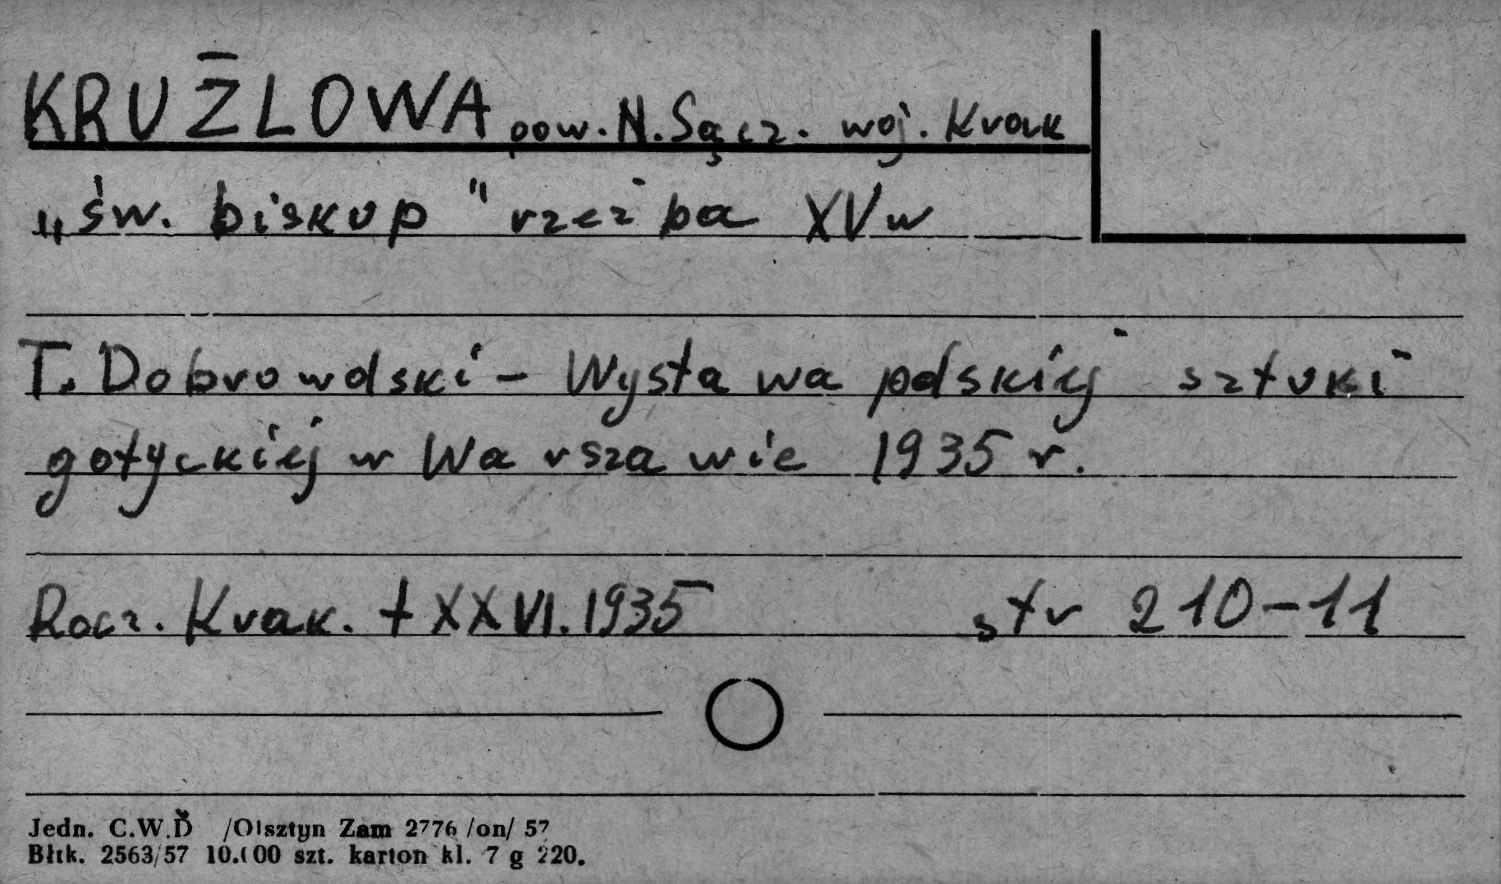 KRUŻLOWA pow. N. Sącz. woj. Krak
„św. biskup" rzeźba XV w
T. Dobrowolski - Wystawa polskiej sztuki
gotyckiej w Warszawie 1935 r.
Rocz. Krak. t XXVI. 1935 str 210-11
Jedn. C.W.D /Olsztyn Zam 2776 /on/ 57
Błtk. 2563/57 10.000 szt. karton kl. 7 g 220.